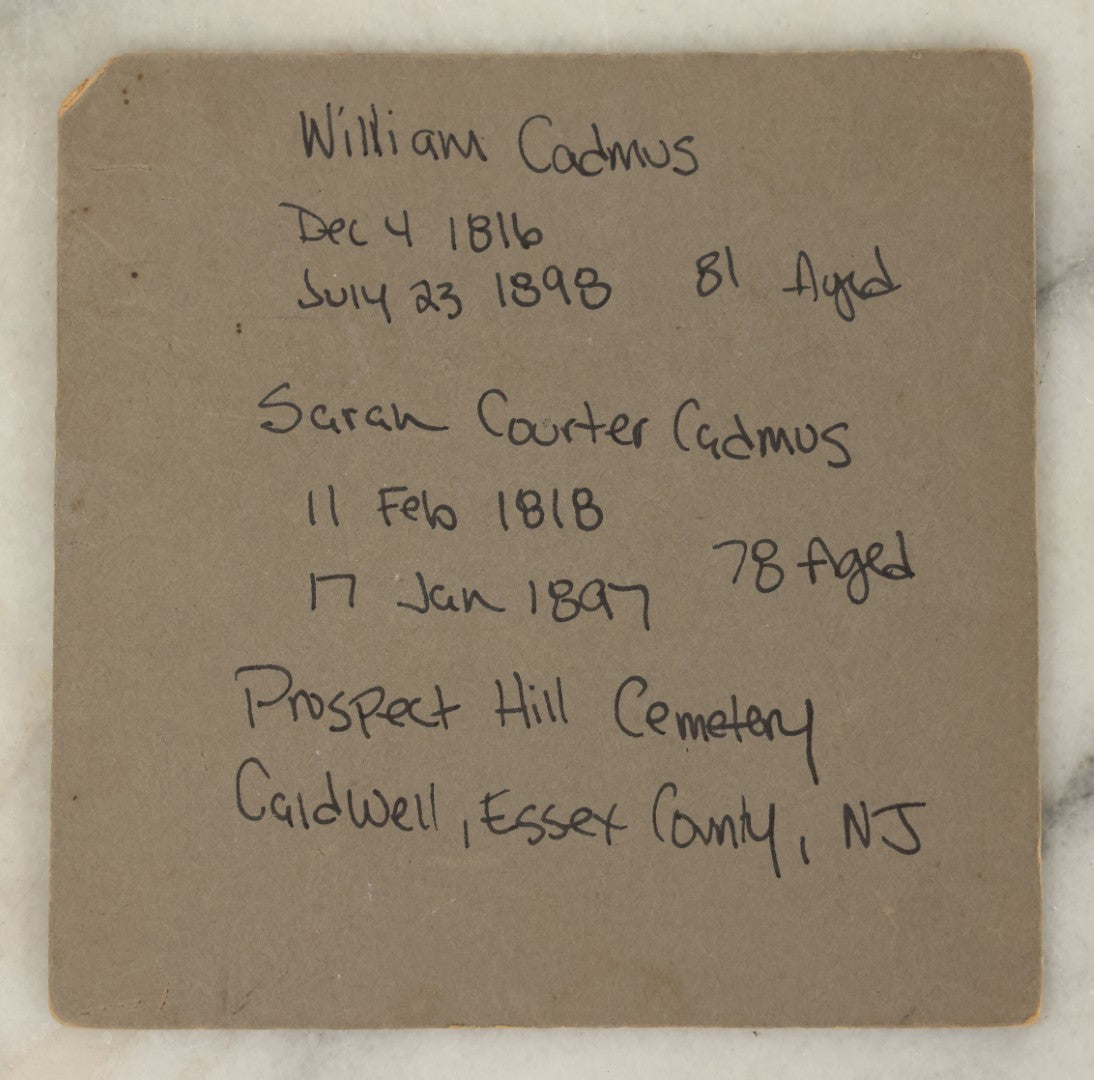 William Cadmus
Dec 4 1816
July 23 1898 81 Aged
Sarah Courter Cadmus
11 Feb 1818
17 Jan 1897 78 Aged
Prospect Hill Cemetery
Caldwell, Essex County, NJ